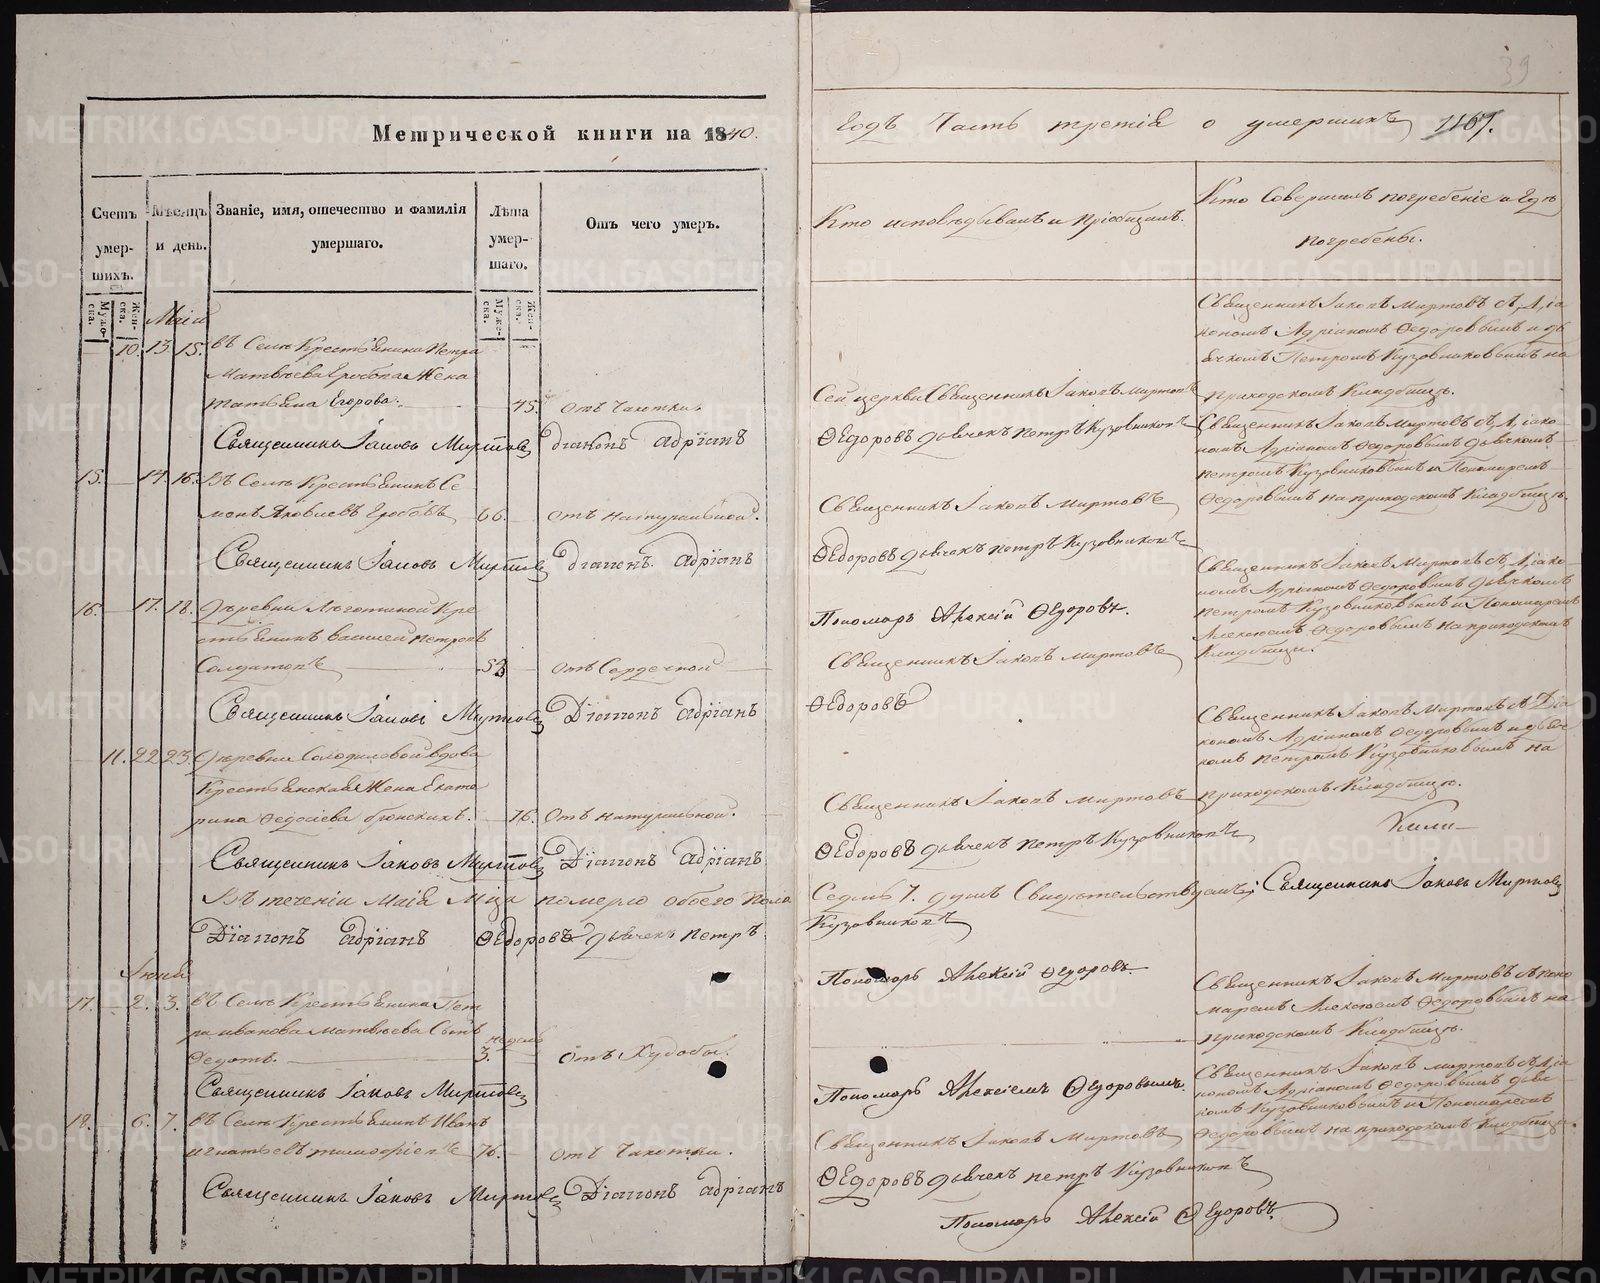 Метрической книги на 1840.
Годъ Часть третія о умершихъ 1167.
39
Счетъ умер-шихъ.
Мѣсяцъ и день.
Званіе, имя, отечество и фамилія умершаго.
Лѣта умер-шаго.
Отъ чего умеръ.
Кто исповѣдывалъ и пріобщалъ.
Кто Совершалъ погребеніе и гдѣ погребены.
Муже-ска.
Жен-ска.
Муже-ска.
Жен-ска.
Маій
10. 13 15. въ Селѣ Крестьянина Петра
Матвѣева Жена
Татьяна Егорова. 45. отъ Чахотки.
Сей церкви Священникъ Іаковъ Миртовъ
Священникъ Іаковъ Миртовъ съ Діа
кономъ Адріаномъ Ѳедоровымъ и дь
ячкомъ Петромъ Кузовниковымъ на
приходскомъ Кладбищѣ.
Священникъ Іаковъ Миртовъ Діаконъ Адріанъ
Ѳедоровъ дьячекъ Петръ Кузовниковъ
15. 14. 16. Въ Селѣ Крестьянинъ Се
менъ Яковлевъ 66. отъ натуральной.
Священникъ Іаковъ Миртовъ
Священникъ Іаковъ Миртовъ съ Діако
номъ Адріаномъ Ѳедоровымъ дьячкомъ
Петромъ Кузовниковымъ и Пономаремъ
Ѳедоровымъ на приходскомъ Кладбищѣ.
Священникъ Іаковъ Миртовъ Діаконъ Адріанъ
Ѳедоровъ дьячекъ Петръ Кузовниковъ
Пономарь Алексій Ѳедоровъ.
16. 17. 18. Деревни Кре
стьянинъ Василей Петровъ
Солдатовъ 53 отъ Сердечной
Священникъ Іаковъ Миртовъ
Священникъ Іаковъ Миртовъ съ Діако
номъ Адріаномъ Ѳедоровымъ дьячкомъ
Петромъ Кузовниковымъ и Пономаремъ
Алексѣемъ Ѳедоровымъ на приходскомъ
Кладбищѣ.
Священникъ Іаковъ Миртовъ Діаконъ Адріанъ
Ѳедоровъ
11. 22 23 Деревни Солодиловой вдова
Крестьянская Жена Екате
рина Ѳедосіева 76. отъ натуральной.
Священникъ Іаковъ Миртовъ
Священникъ Іаковъ Миртовъ съ Діа
кономъ Адріаномъ Ѳедоровымъ и дьяч
комъ Петромъ Кузовниковымъ на
приходскомъ Кладбищѣ.
Священникъ Іаковъ Миртовъ Діаконъ Адріанъ
Ѳедоровъ дьячекъ Петръ Кузовниковъ
Въ теченіи Маія М̃ца померло обоего пола
Седмь 7. душъ Свидѣтельствуемъ: Священникъ Іаковъ Миртовъ
Діаконъ Адріанъ Ѳедоровъ дьячекъ Петръ
Кузовниковъ
Пономарь Алексій Ѳедоровъ.
Іюнь
17. 2. 3. въ Селѣ Крестьянина Пет
ра Иванова Матвѣева Сынъ
Ѳедотъ. 3. недель отъ Худобы.
Священникъ Іаковъ Миртовъ съ поно
маремъ Алексѣемъ Ѳедоровымъ на
приходскомъ Кладбищѣ.
Священникъ Іаковъ Миртовъ
Пономарь Алексіемъ Ѳедоровымъ.
18. 6. 7. въ Селѣ Крестьянинъ Иванъ
Игнатьевъ 76. отъ Чахотки.
Священникъ Іаковъ Миртовъ
Священникъ Іаковъ Миртовъ съ Діа
кономъ Адріаномъ Ѳедоровымъ дьяч
комъ Кузовниковымъ и Пономаремъ
Ѳедоровымъ на приходскомъ Кладбищѣ.
Священникъ Іаковъ Миртовъ Діаконъ Адріанъ
Ѳедоровъ дьячекъ Петръ Кузовниковъ
Пономарь Алексій Ѳедоровъ.
METRIKI.GASO-URAL.RU